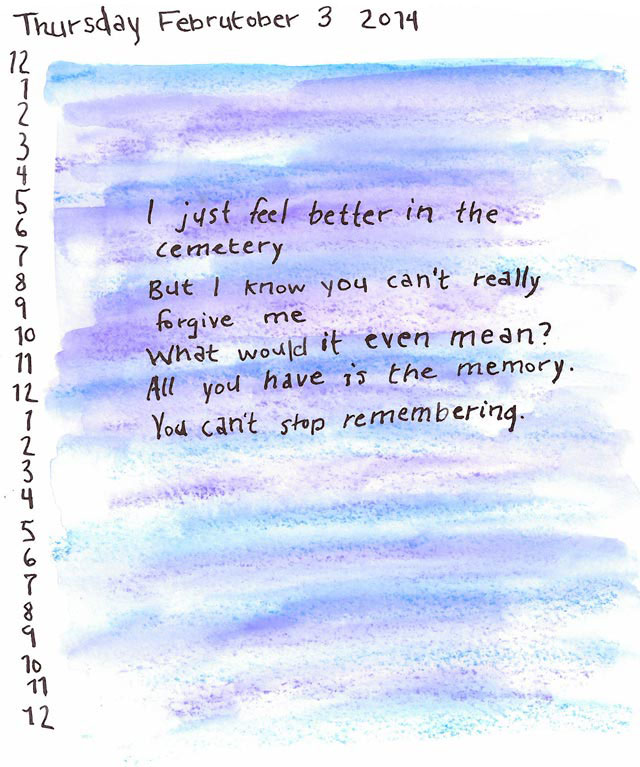 Thursday Februtober 3 2014
12
1
2
3
4
5
6
7
8
9
10
11
12
1
2
3
4
5
6
7
8
9
10
11
12
I just feel better in the
cemetery
But I know you can't really
forgive me
What would it even mean?
All you have is the memory.
You can't stop remembering.